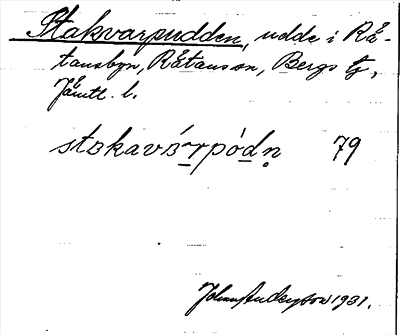 Stakvarpudden, udde i Rå-
tansbyn, Råtans sn, Bergs tg,
Jämtl. l.
stakavárpódn 79
Johan Anderson 1931.